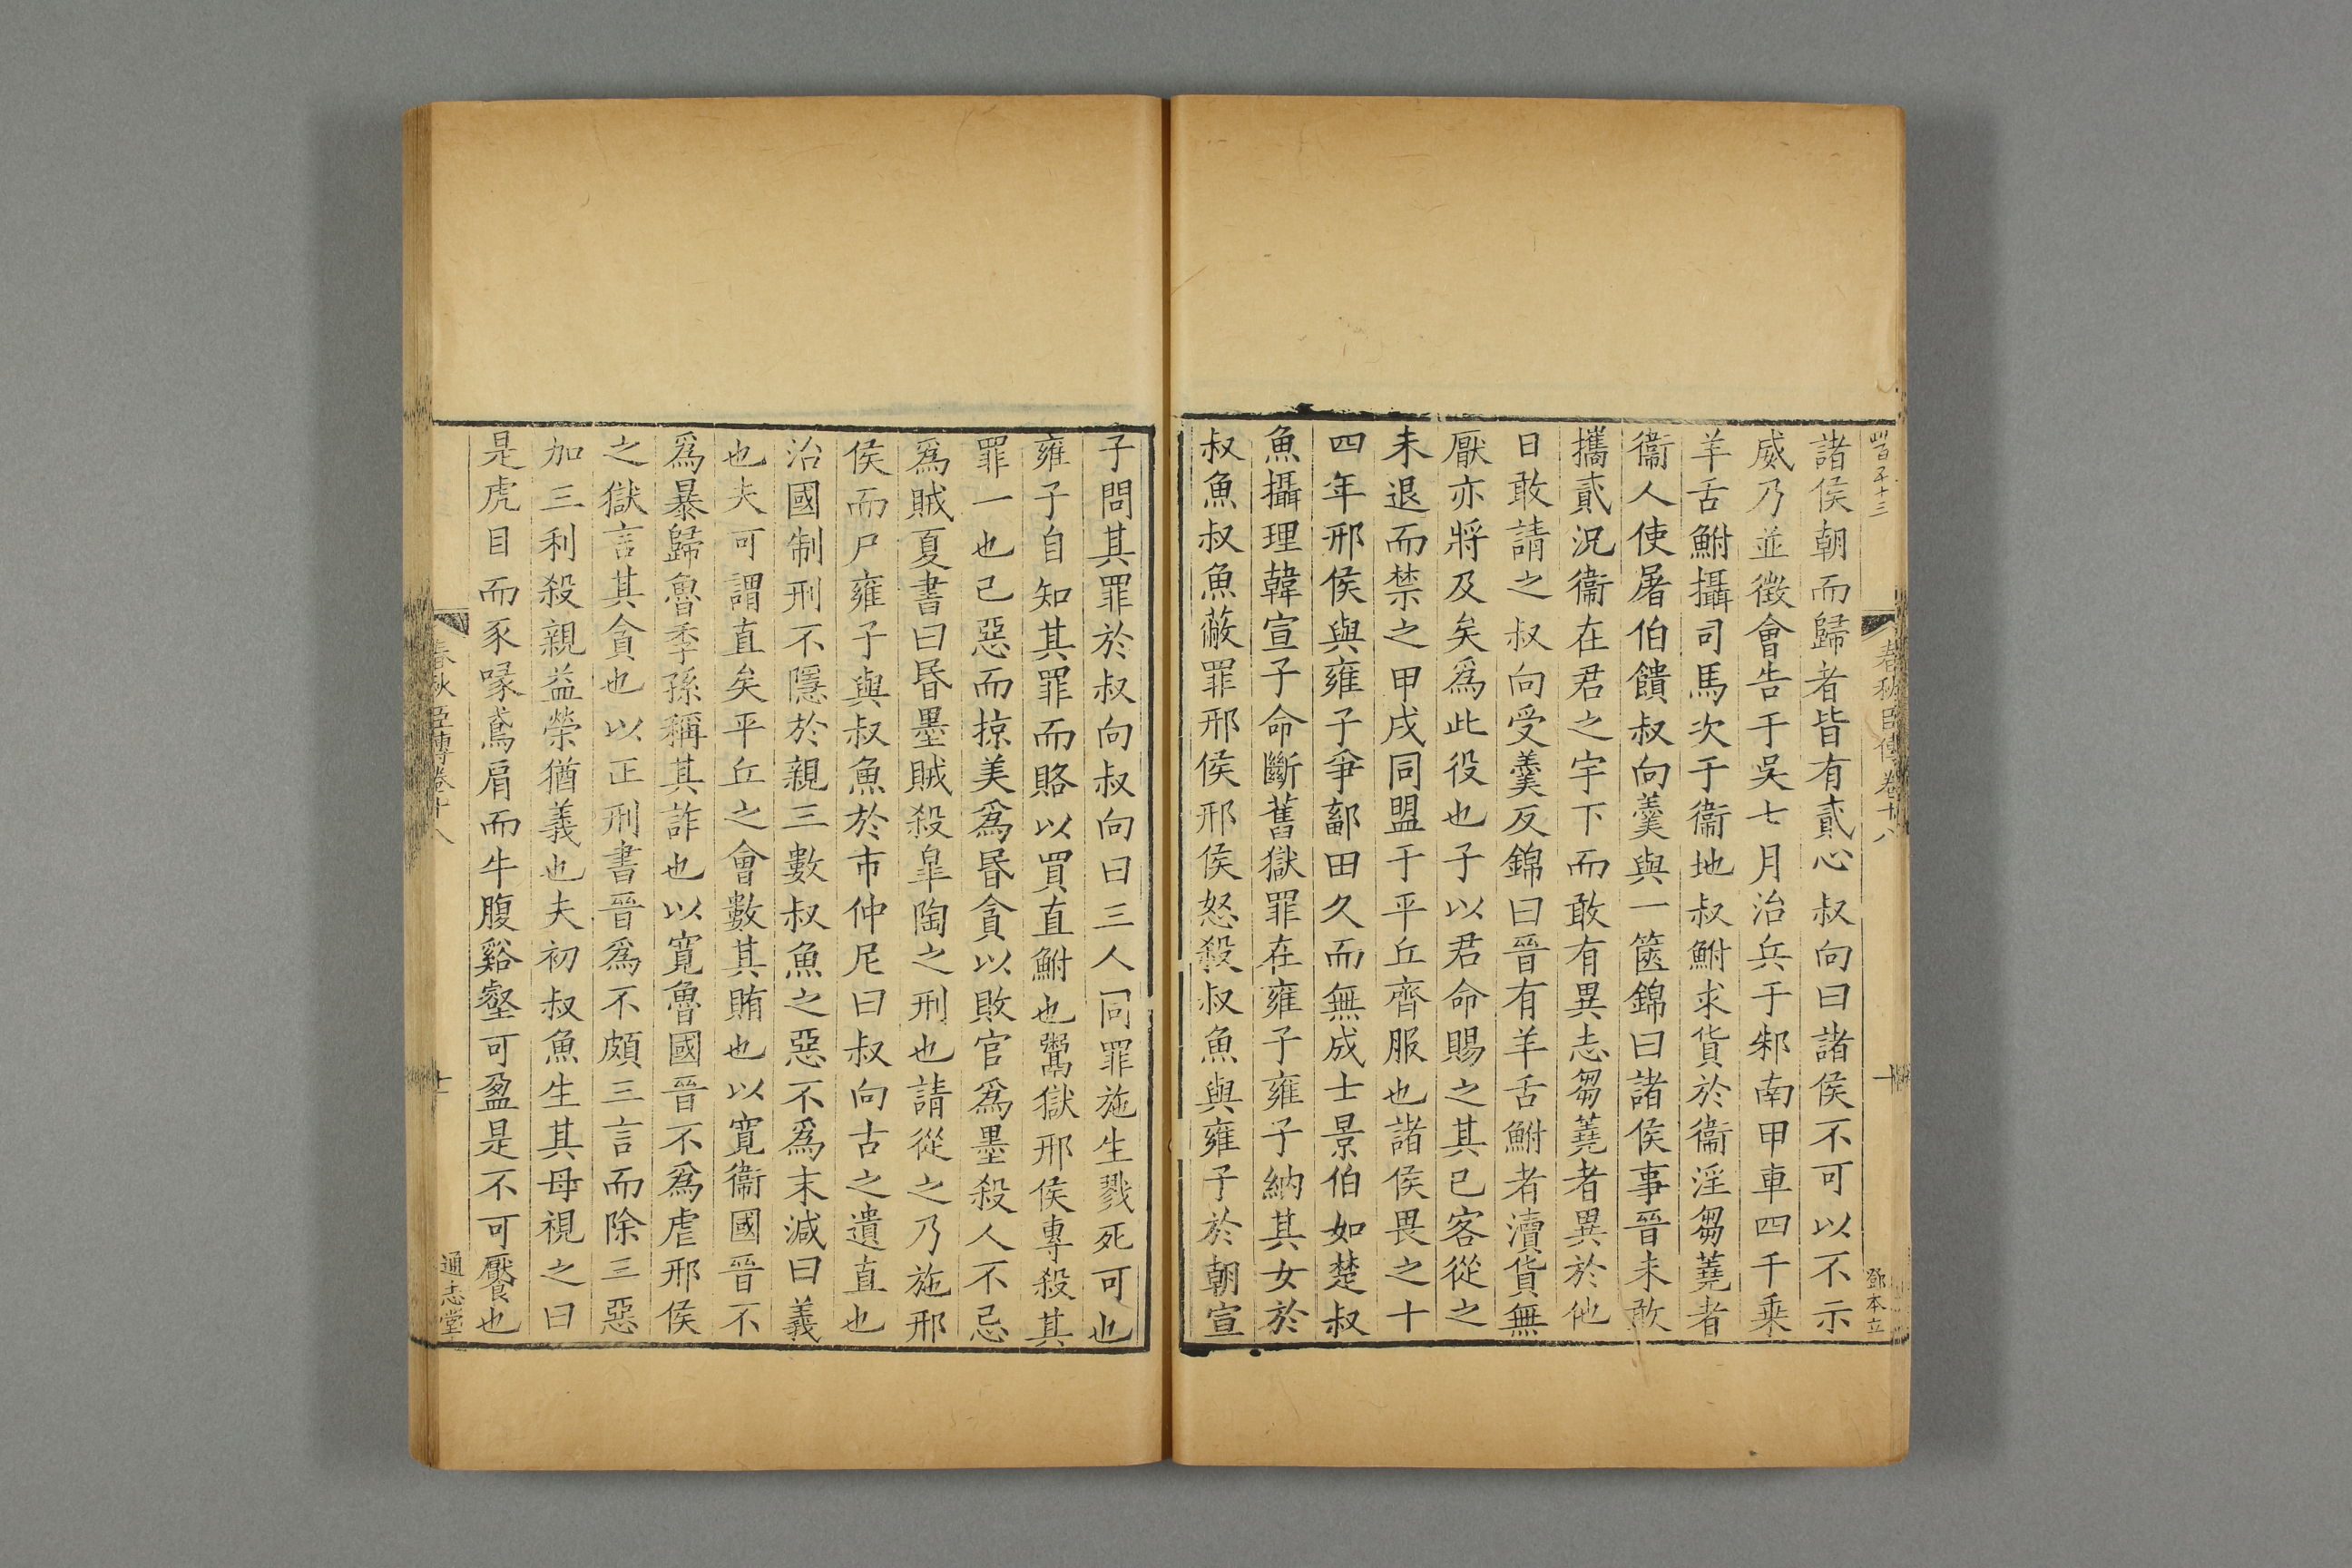 春秋臣傳卷十八
十
鄧本立
諸侯朝而歸者皆有貳心叔向曰諸侯不可以不示
威乃並徵會告于吳七月治兵于邾南甲車四千乘
羊舌鮒攝司馬次于衞地叔鮒求貨於衞淫芻蕘者
衞人使屠伯饋叔向羹與一篋錦曰諸侯事晉未敢
攜貳況衞在君之宇下而敢有異志芻蕘者異於他
日敢請之叔向受羹反錦曰晉有羊舌鮒者瀆貨無
厭亦將及矣爲此役也子以君命賜之其已客從之
未退而禁之甲戌同盟于平丘齊服也諸侯畏之十
四年邢侯與雍子爭鄐田久而無成士景伯如楚叔
魚攝理韓宣子命斷舊獄罪在雍子雍子納其女於
叔魚叔魚蔽罪邢侯邢侯怒殺叔魚與雍子於朝宣
子問其罪於叔向叔向曰三人同罪施生戮死可也
雍子自知其罪而賂以買直鮒也鬻獄邢侯專殺其
罪一也己惡而掠美爲昬貪以敗官爲墨殺人不忌
爲賊夏書曰昬墨賊殺皐陶之刑也請從之乃施邢
侯而尸雍子與叔魚於市仲尼曰叔向古之遺直也
治國制刑不隱於親三數叔魚之惡不爲末減曰義
也夫可謂直矣平丘之會數其賄也以寬衞國晉不
爲暴歸魯季孫稱其詐也以寬魯國晉不爲虐邢侯
之獄言其貪也以正刑書晉爲不頗三言而除三惡
加三利殺親益榮猶義也夫初叔魚生其母視之曰
是虎目而豕喙鳶肩而牛腹谿壑可盈是不可饜也
春秋臣傳卷十八
十一
通志堂